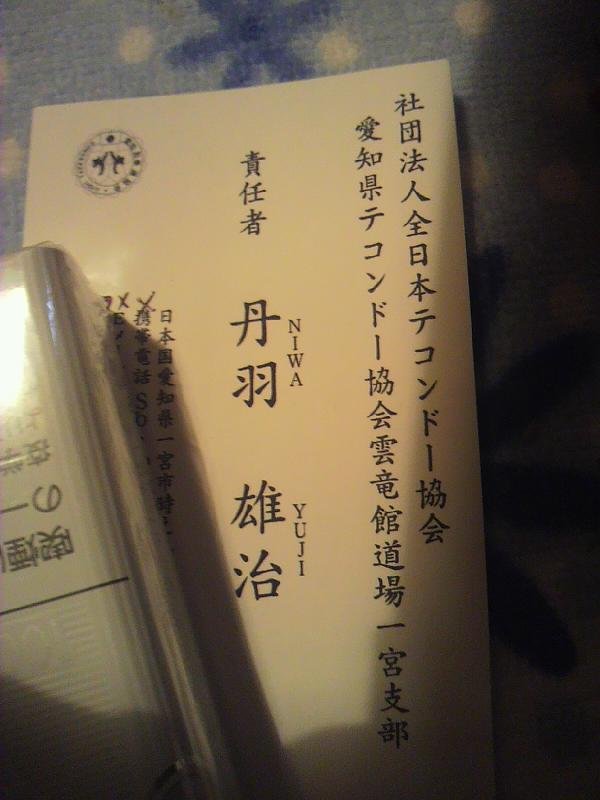 社団法人全日本テコンドー協会
愛知県テコンドー協会雲竜館道場一宮支部
責任者
丹羽 雄治
NIWA YUJI
日本国愛知県一宮市時
携帯電話
Eメ
喫煙
の一